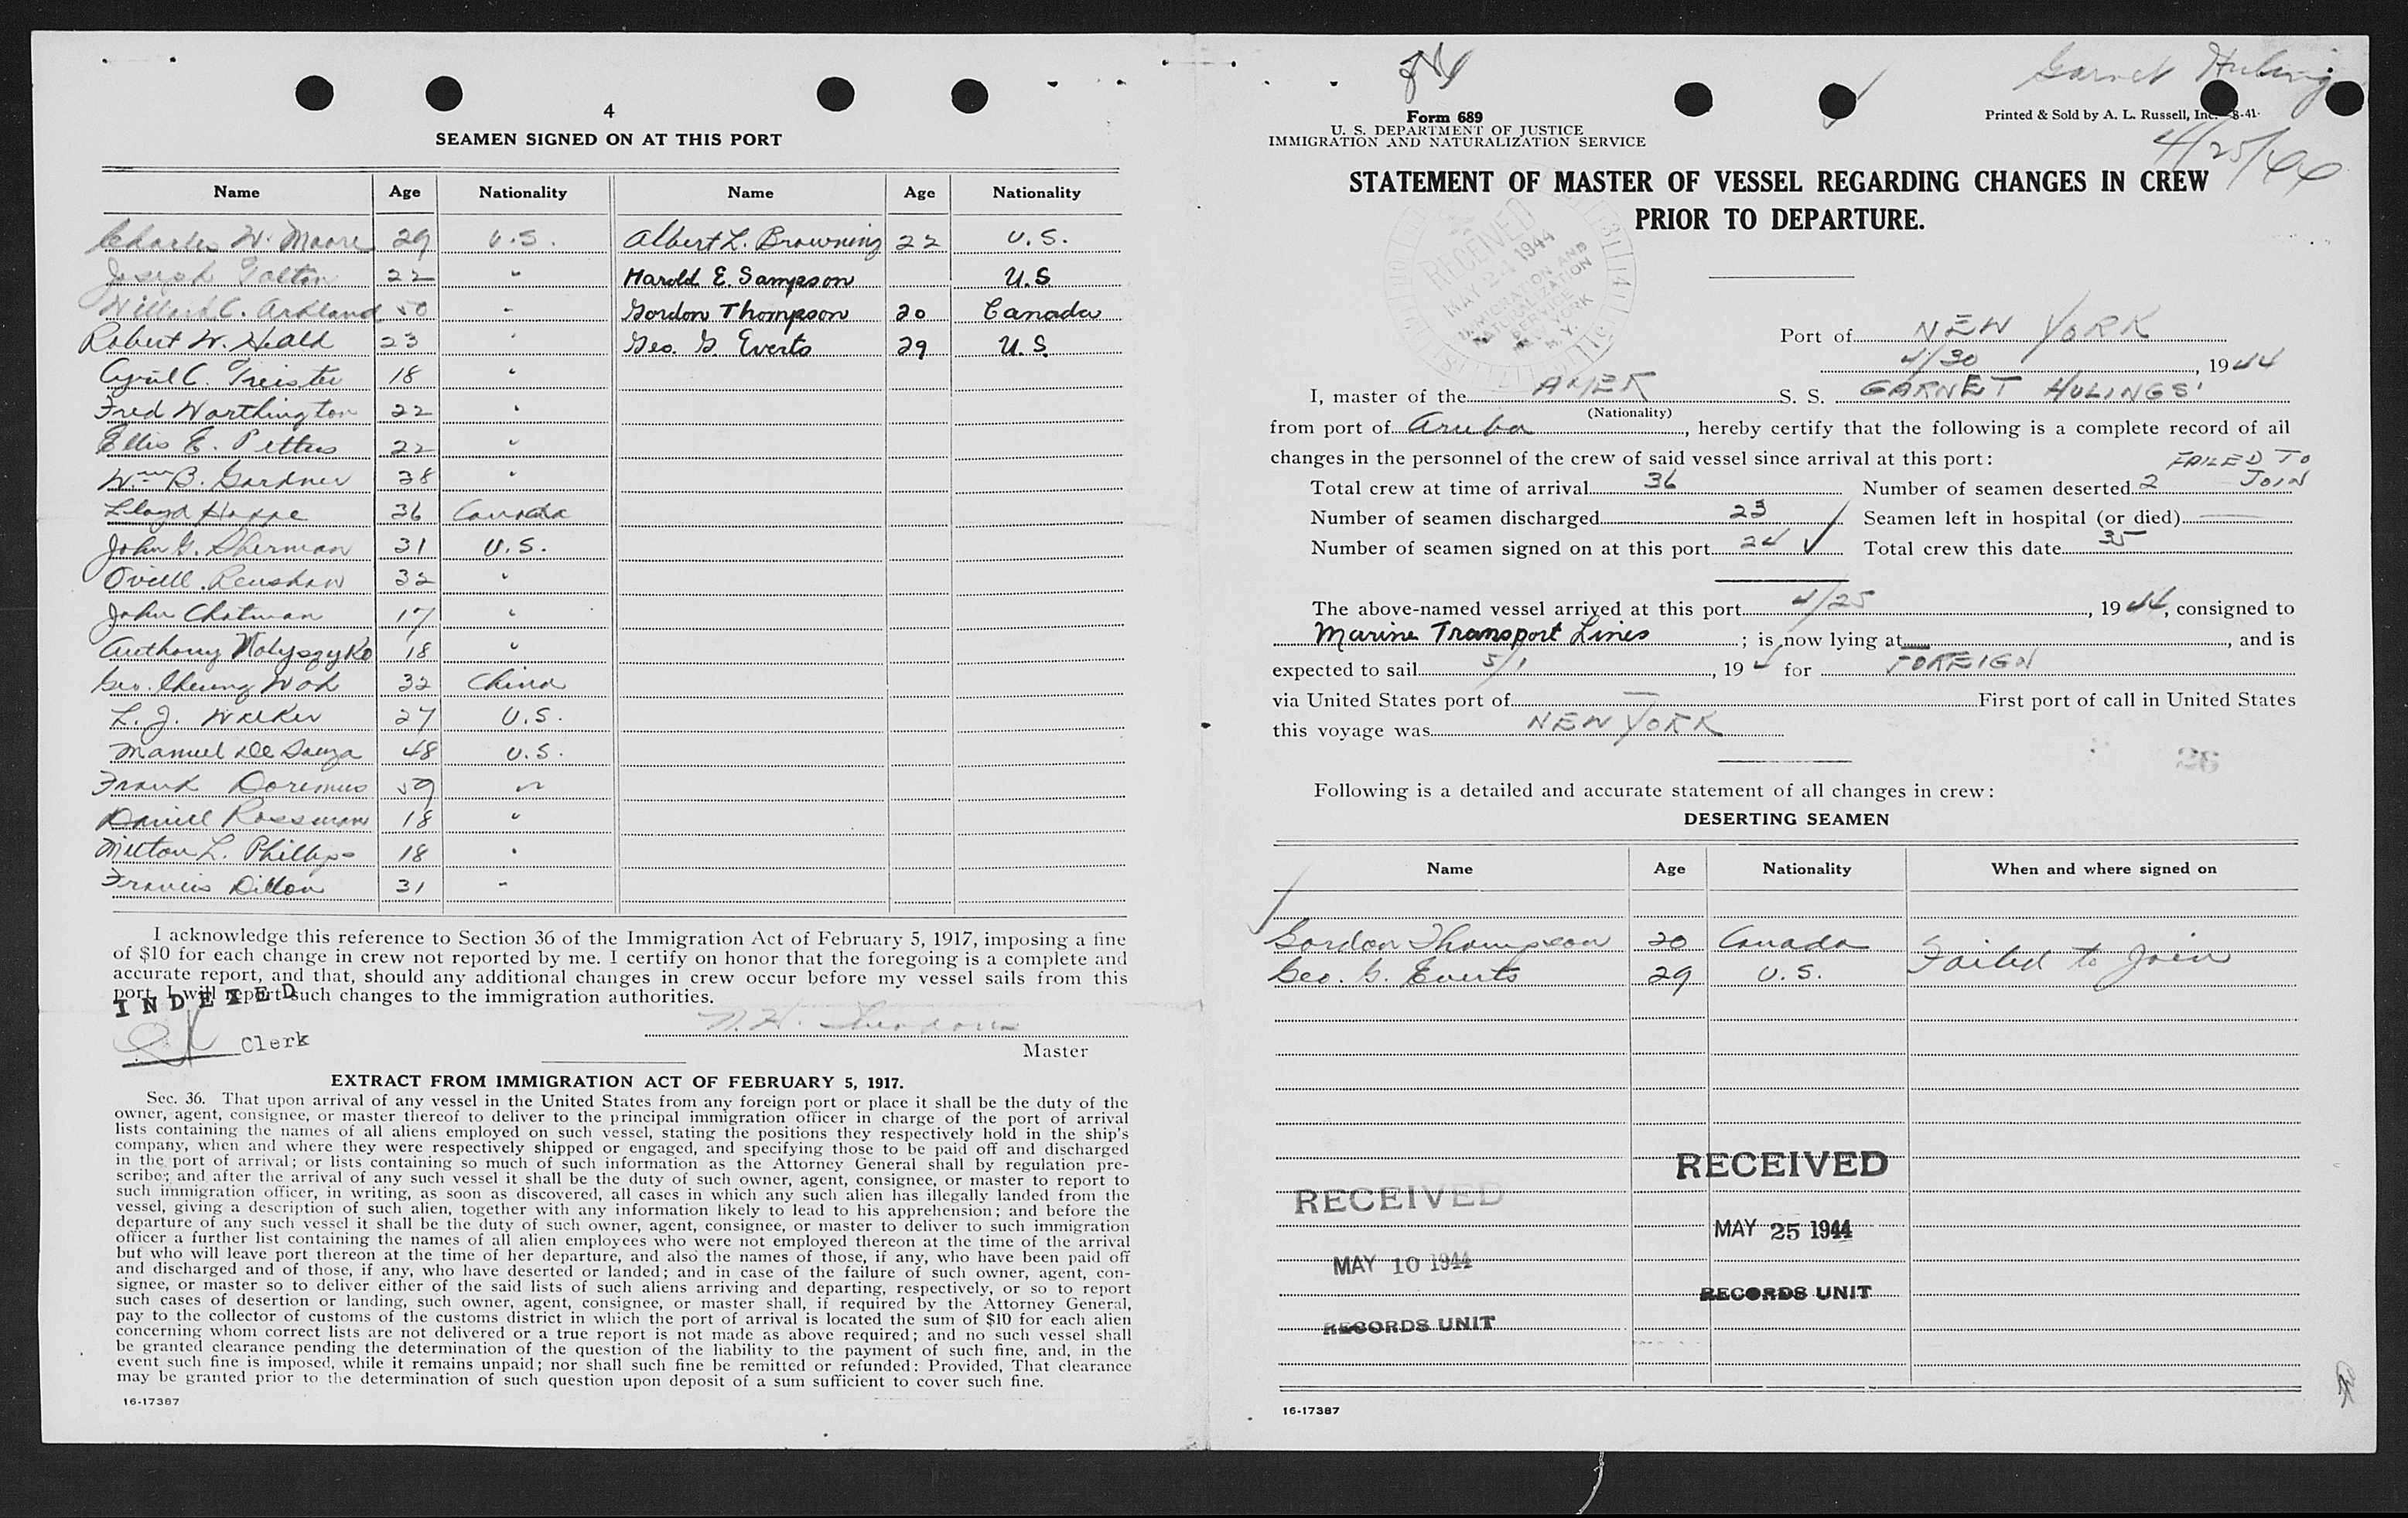 4
SEAMEN SIGNED ON AT THIS PORT
Name Age Nationality Name Age Nationality
Charles W. Moore 29 U.S. Albert L. Browning 22 U.S.
Joseph 22 " Harold E. Sampson U.S
Willard C. 50 " Gordon Thompson 20 Canada
Robert W. Heald 23 " Geo. G. Everts 29 U.S.
Cyril C. 18 "
Fred Worthington 22 "
Ellis E. Pettus 22 "
Wm B. Gardner 38 "
Lloyd 36 Canada
John G. Sherman 31 U.S.
Renshaw 32 "
John Chatman 17 "
Anthony 18 "
Geo. Cheung Wok 32 China
L. J. Walker 27 U.S.
Manuel De Souza 48 U.S.
Frank Doremus 59 "
Daniel Rossman 18 "
Milton L. Phillips 18 "
Francis Dillon 31 "
I acknowledge this reference to Section 36 of the Immigration Act of February 5, 1917, imposing a fine
of $10 for each change in crew not reported by me. I certify on honor that the foregoing is a complete and
accurate report, and that, should any additional changes in crew occur before my vessel sails from this
port, I will report such changes to the immigration authorities.
INDEXED
Clerk
N. H.
Master
EXTRACT FROM IMMIGRATION ACT OF FEBRUARY 5, 1917.
Sec. 36. That upon arrival of any vessel in the United States from any foreign port or place it shall be the duty of the
owner, agent, consignee, or master thereof to deliver to the principal immigration officer in charge of the port of arrival
lists containing the names of all aliens employed on such vessel, stating the positions they respectively hold in the ship's
company, when and where they were respectively shipped or engaged, and specifying those to be paid off and discharged
in the port of arrival; or lists containing so much of such information as the Attorney General shall by regulation pre-
scribe; and after the arrival of any such vessel it shall be the duty of such owner, agent, consignee, or master to report to
such immigration officer, in writing, as soon as discovered, all cases in which any such alien has illegally landed from the
vessel, giving a description of such alien, together with any information likely to lead to his apprehension; and before the
departure of any such vessel it shall be the duty of such owner, agent, consignee, or master to deliver to such immigration
officer a further list containing the names of all alien employees who were not employed thereon at the time of the arrival
but who will leave port thereon at the time of her departure, and also the names of those, if any, who have been paid off
and discharged and of those, if any, who have deserted or landed; and in case of the failure of such owner, agent, con-
signee, or master so to deliver either of the said lists of such aliens arriving and departing, respectively, or so to report
such cases of desertion or landing, such owner, agent, consignee, or master shall, if required by the Attorney General,
pay to the collector of customs of the customs district in which the port of arrival is located the sum of $10 for each alien
concerning whom correct lists are not delivered or a true report is not made as above required; and no such vessel shall
be granted clearance pending the determination of the question of the liability to the payment of such fine, and, in the
event such fine is imposed, while it remains unpaid; nor shall such fine be remitted or refunded: Provided, That clearance
may be granted prior to the determination of such question upon deposit of a sum sufficient to cover such fine.
16-17387
Garnet Hulings
4/25/44
Form 689
U. S. DEPARTMENT OF JUSTICE
IMMIGRATION AND NATURALIZATION SERVICE
Printed & Sold by A. L. Russell, Inc. 8-41
STATEMENT OF MASTER OF VESSEL REGARDING CHANGES IN CREW
PRIOR TO DEPARTURE.
RECEIVED
MAY 24 1944
IMMIGRATION AND
NATURALIZATION
SERVICE
NEW YORK
N.Y.
Port of NEW YORK
4/30, 1944
I, master of the AMER S. S. GARNET HULINGS'
(Nationality)
from port of Aruba, hereby certify that the following is a complete record of all
changes in the personnel of the crew of said vessel since arrival at this port:
Total crew at time of arrival 36 Number of seamen deserted 2 FAILED TO JOIN
Number of seamen discharged 23 Seamen left in hospital (or died)
Number of seamen signed on at this port 24 Total crew this date 35
The above-named vessel arrived at this port 4/25, 1944, consigned to
Marine Transport Lines; is now lying at , and is
expected to sail 5/1, 194 for FOREIGN
via United States port of — First port of call in United States
this voyage was NEW YORK
26
Following is a detailed and accurate statement of all changes in crew:
DESERTING SEAMEN
Name Age Nationality When and where signed on
Gordon Thompson 20 Canada Failed to Join
Geo. G. Everts 29 U.S.
RECEIVED
MAY 25 1944
RECORDS UNIT
RECEIVED
MAY 10 1944
RECORDS UNIT
16-17387